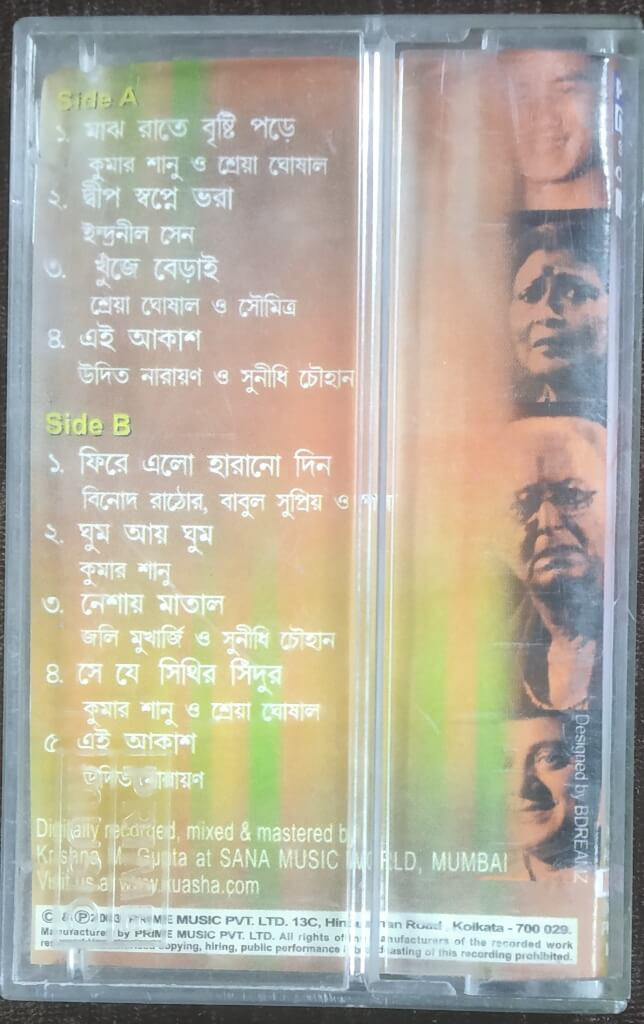 Side A
১. মাঝ রাতে বৃষ্টি পড়ে
কুমার শানু ও শ্রেয়া ঘোষাল
২. দ্বীপ স্বপ্নে ভরা
ইন্দ্রনীল সেন
৩. খুঁজে বেড়াই
শ্রেয়া ঘোষাল ও সৌমিত্র
৪. এই আকাশ
উদিত নারায়ণ ও সুনীধি চৌহান
Side B
১. ফিরে এলো হারানো দিন
বিনোদ রাঠোর, বাবুল সুপ্রিয় ও
২. ঘুম আয় ঘুম
কুমার শানু
৩. নেশায় মাতাল
জলি মুখার্জি ও সুনীধি চৌহান
৪. সে যে সিথির সিঁদুর
কুমার শানু ও শ্রেয়া ঘোষাল
৫ এই আকাশ
উদিত নারায়ণ
Digitally recorded, mixed & mastered by
Krishna M. Gupta at SANA MUSIC WORLD, MUMBAI
Visit us at www.kuasha.com
© & ℗ 2003 PRIME MUSIC PVT. LTD. 13C, Hindusthan Road, Kolkata - 700 029.
Manufactured by PRIME MUSIC PVT. LTD. All rights of the manufacturers of the recorded work
copying, hiring, public performance & broadcasting of this recording prohibited.
Designed by BDREAMZ